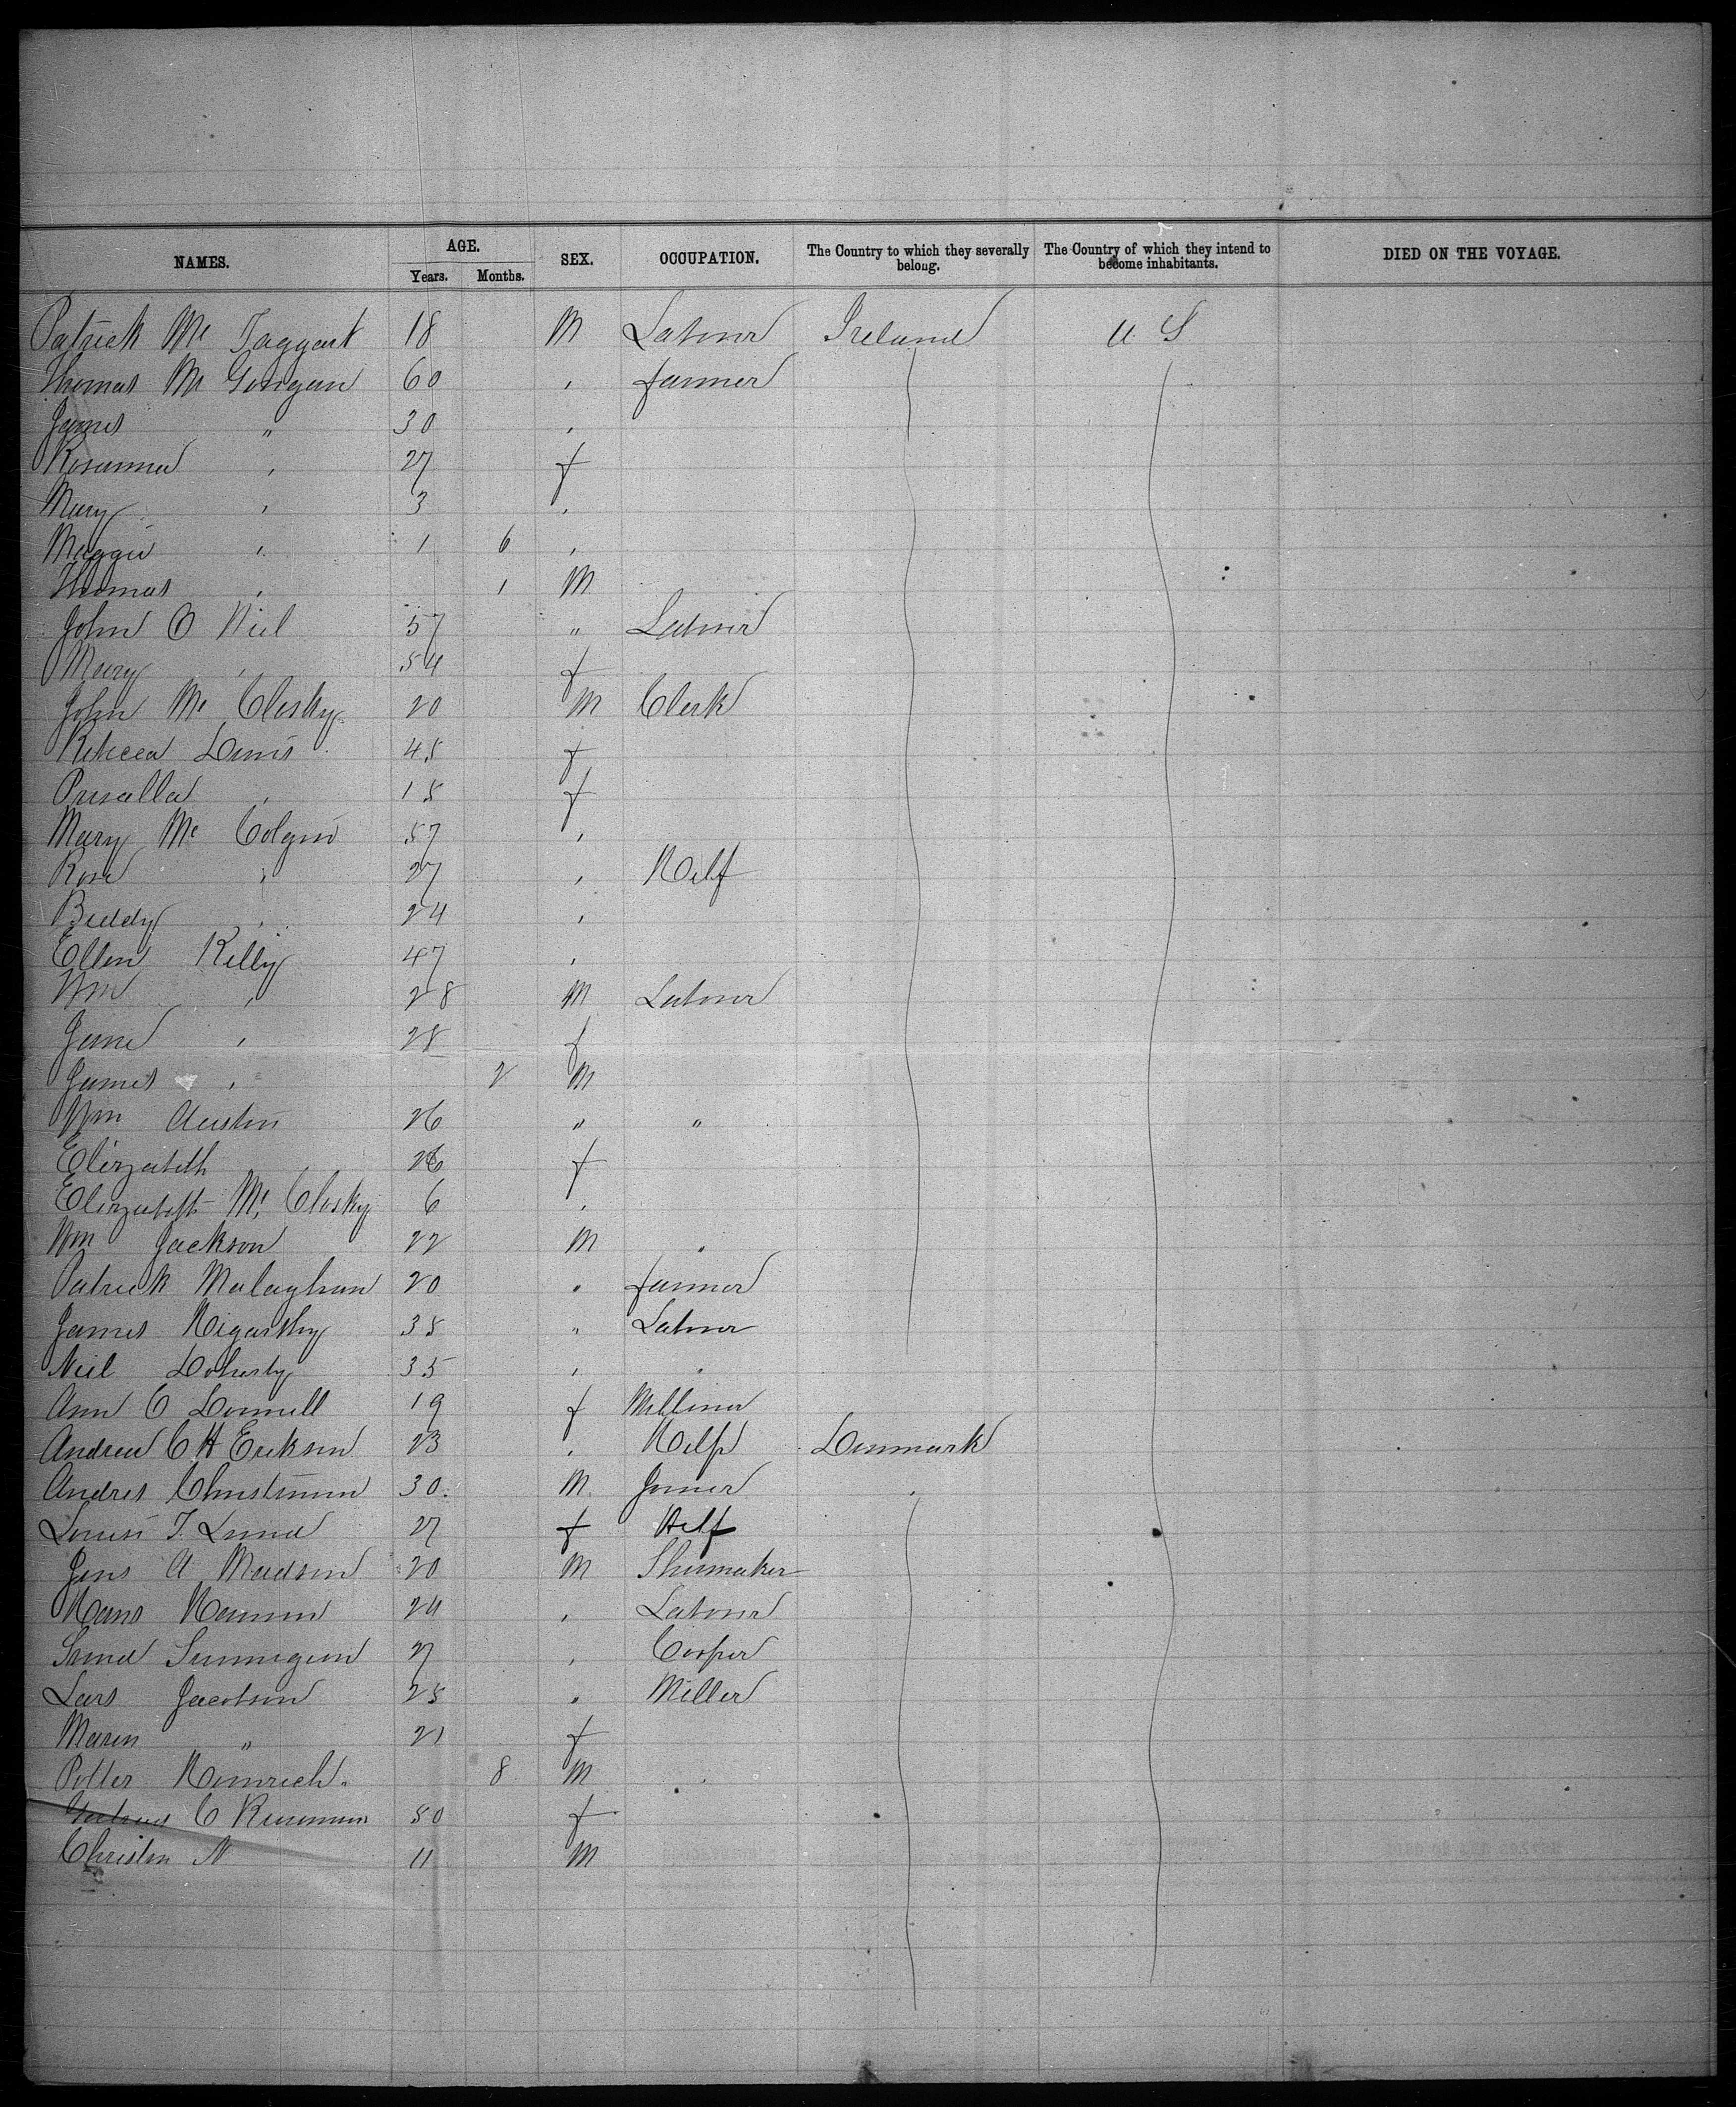 NAMES. AGE. SEX. OCCUPATION. The Country to which they severally belong. The Country of which they intend to become inhabitants. DIED ON THE VOYAGE.
Years. Months.
Patrick Mc Taggart 18 M Labour Ireland U S
Thomas Mc Gonigan 60 , farmer
James " 30 ,
Rosanna , 27 f
Mary , 3 ,
Maggie , 1 6 ,
Thomas , 1 M
John O Niel 57 " Labour
Mary , 54 f
John Mc Closky 20 M Clerk
Rebecca Davis 45 f
Prisalla , 15 f
Mary Mc Colgin 57 ,
Rose , 27 , Help
Biddy , 24 ,
Ellen Kelly 47 ,
Wm , 28 M Labour
Jane , 28 f
James , 2 M
Wm Austin 26 " "
Elizabeth 26 f
Elizabeth Mc Closky 6 ,
Wm Jackson 22 M "
Patrick Malaghan 20 " farmer
James Hegarthy 35 " Labour
Niel Doherty 35 , "
Ann O Donnell 19 f Milliner
Andrea C H Erikson 23 , Help Denmark
Andres Christensen 30 M Joiner
Louisi T. Lund 27 f Help
Jens A Madsen 20 M Shumaker
Hans Hansen 24 , Labour
27 , Cooper
Lars Jacobson 25 " Miller
Maren " 21 f
Petter Heinrich 8 M
C Rasmussen 50 f
Christen N 11 M